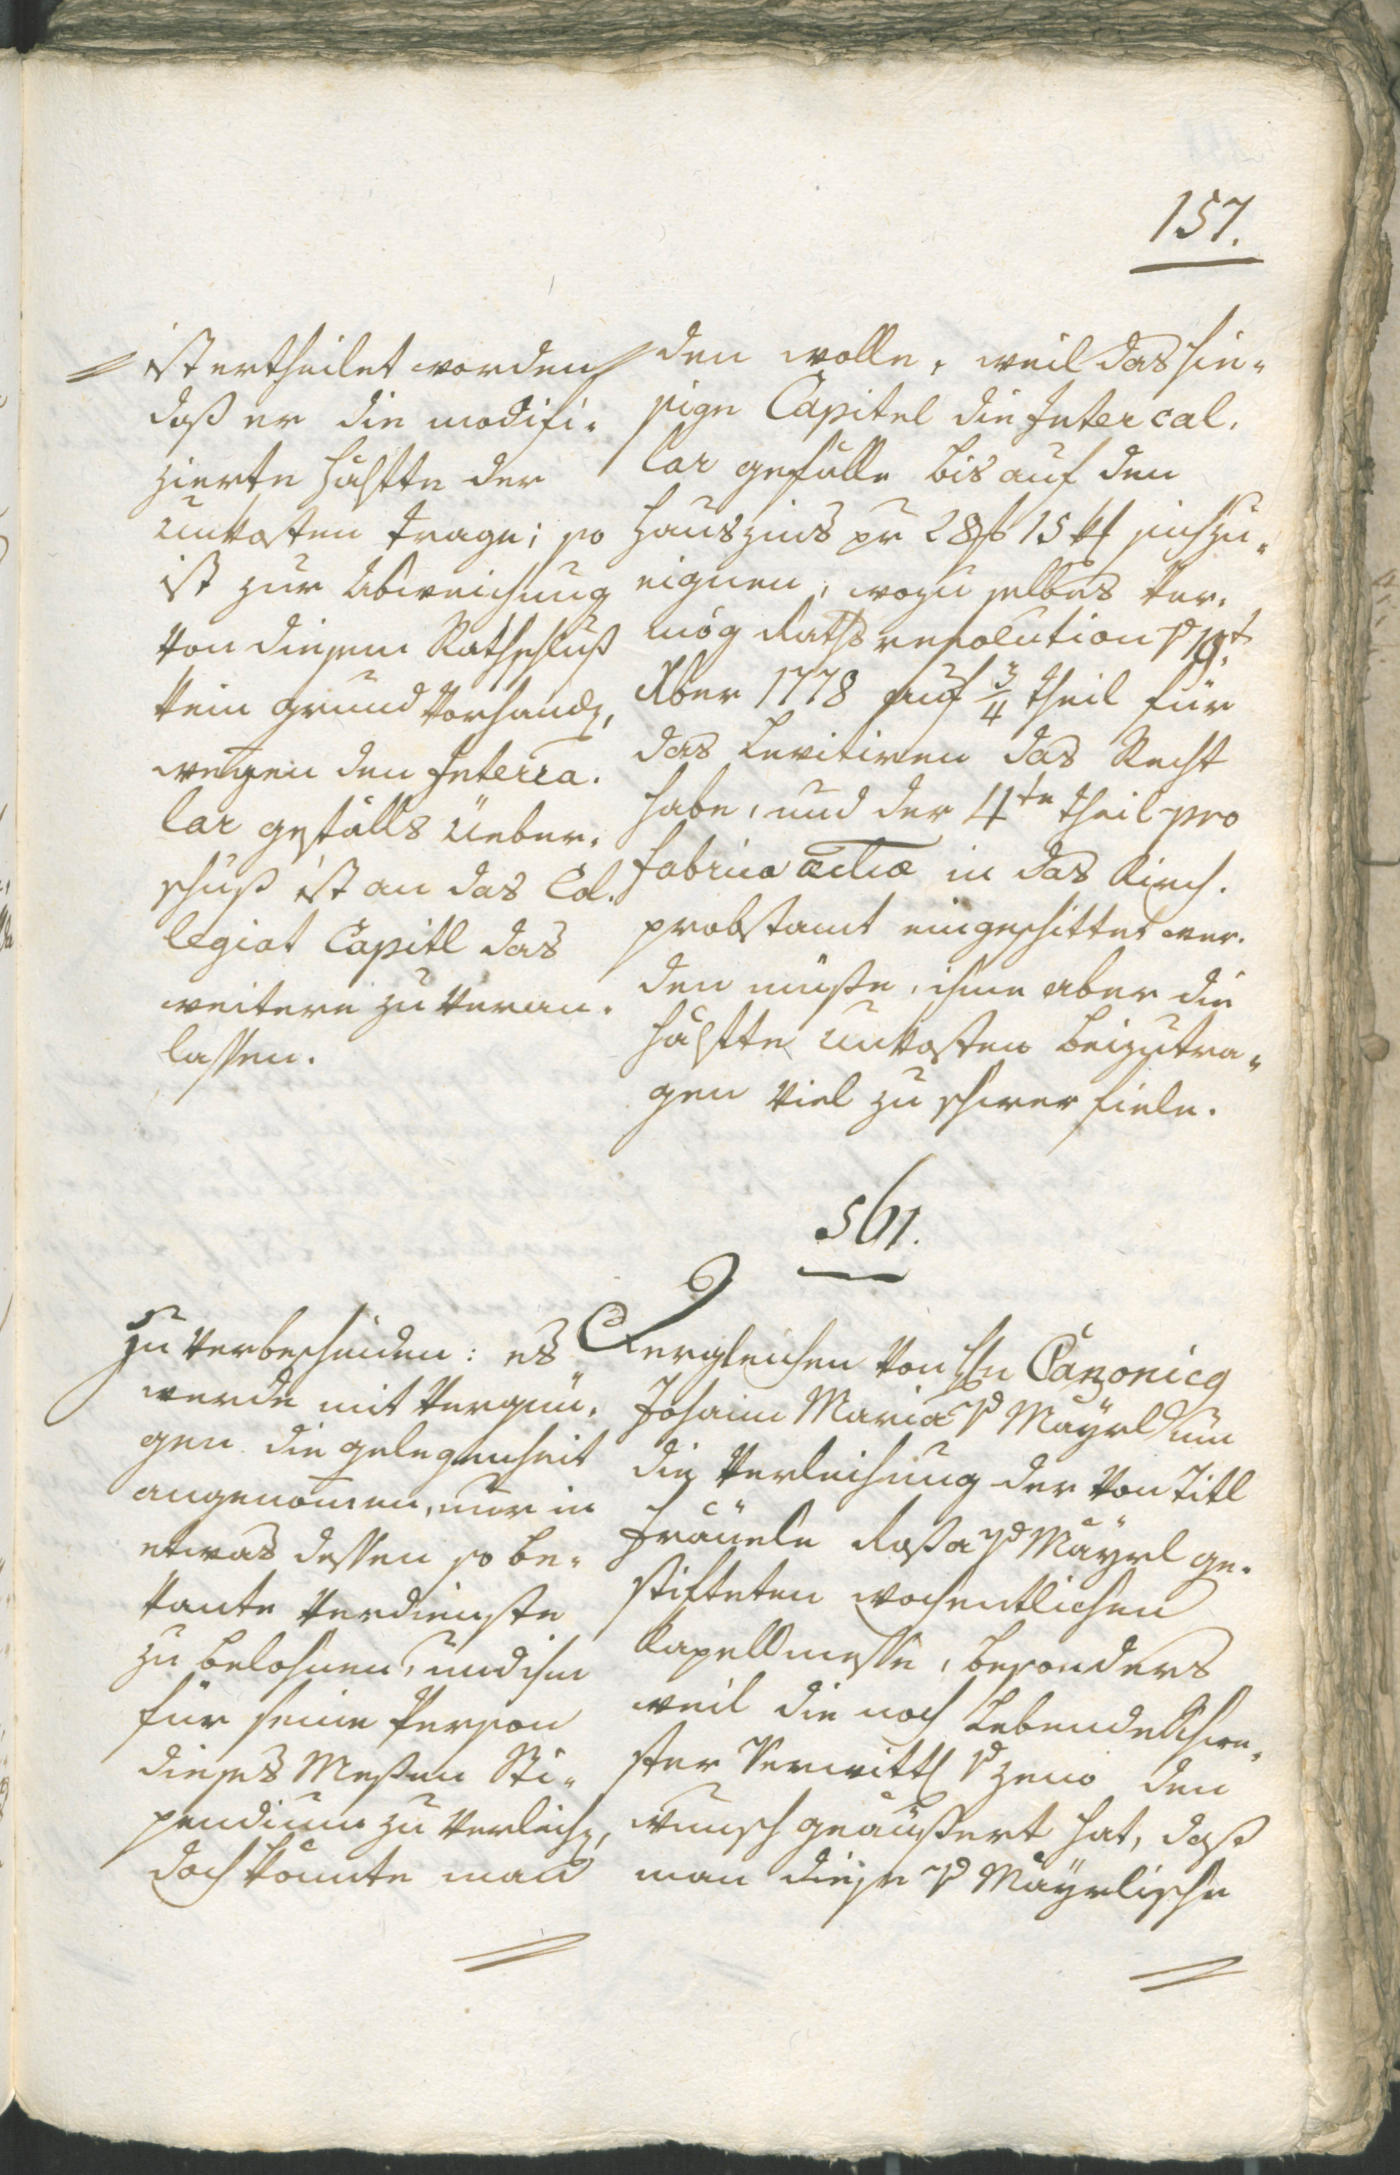 157.
ist ertheilet worden
daß er die modifi-
zierte hälfte der
Unkosten trage; so
ist zur Abweichung
von diesem Rathschluß
kein grund vorhand,
wegen den Interca-
lar gefälls Ueber-
schuß ist an das Col-
legiat Capitl das
weitere zu veran-
lassen.
den wolle, weil das hie-
sige Capitel die Intercal.
lar gefälle bis auf den
Hauszins pr 28 f 15 kr sich zu-
eignen, wozu selbes ver-
mög Raths resolution v 19t
Xber 1778 auf 3/4 theil für
das Levitiren das Recht
habe, und der 4te theil pro
fabrica eccliae in das Kirch-
probstamt eingeschittet wer-
den müße, ihme aber die
hälfte Unkosten beizutra-
gen viel zu schwer fiele.
561.
zu verbescheiden: es
werde mit Vergnü-
gen die gelegenheit
angenomen, nur in
etwas dessen so be-
kante Verdienste
zu belohnen, und ihm
für seine Person
dieses Meßen Sti-
pendium zu verleih,
doch könnte man
Vergleichen von Hn Canonicg
Johann Maria v Mayrl um
die Verleihung der von Titl
Fräuele Rosa v Mäyrl ge-
stifteten wochentlichen
Kapellmesse, besonders
weil die noch Lebende Schwe-
ster Verwittl v Zeno den
wunsch geäußert hat, daß
man diese v Mäyrlische